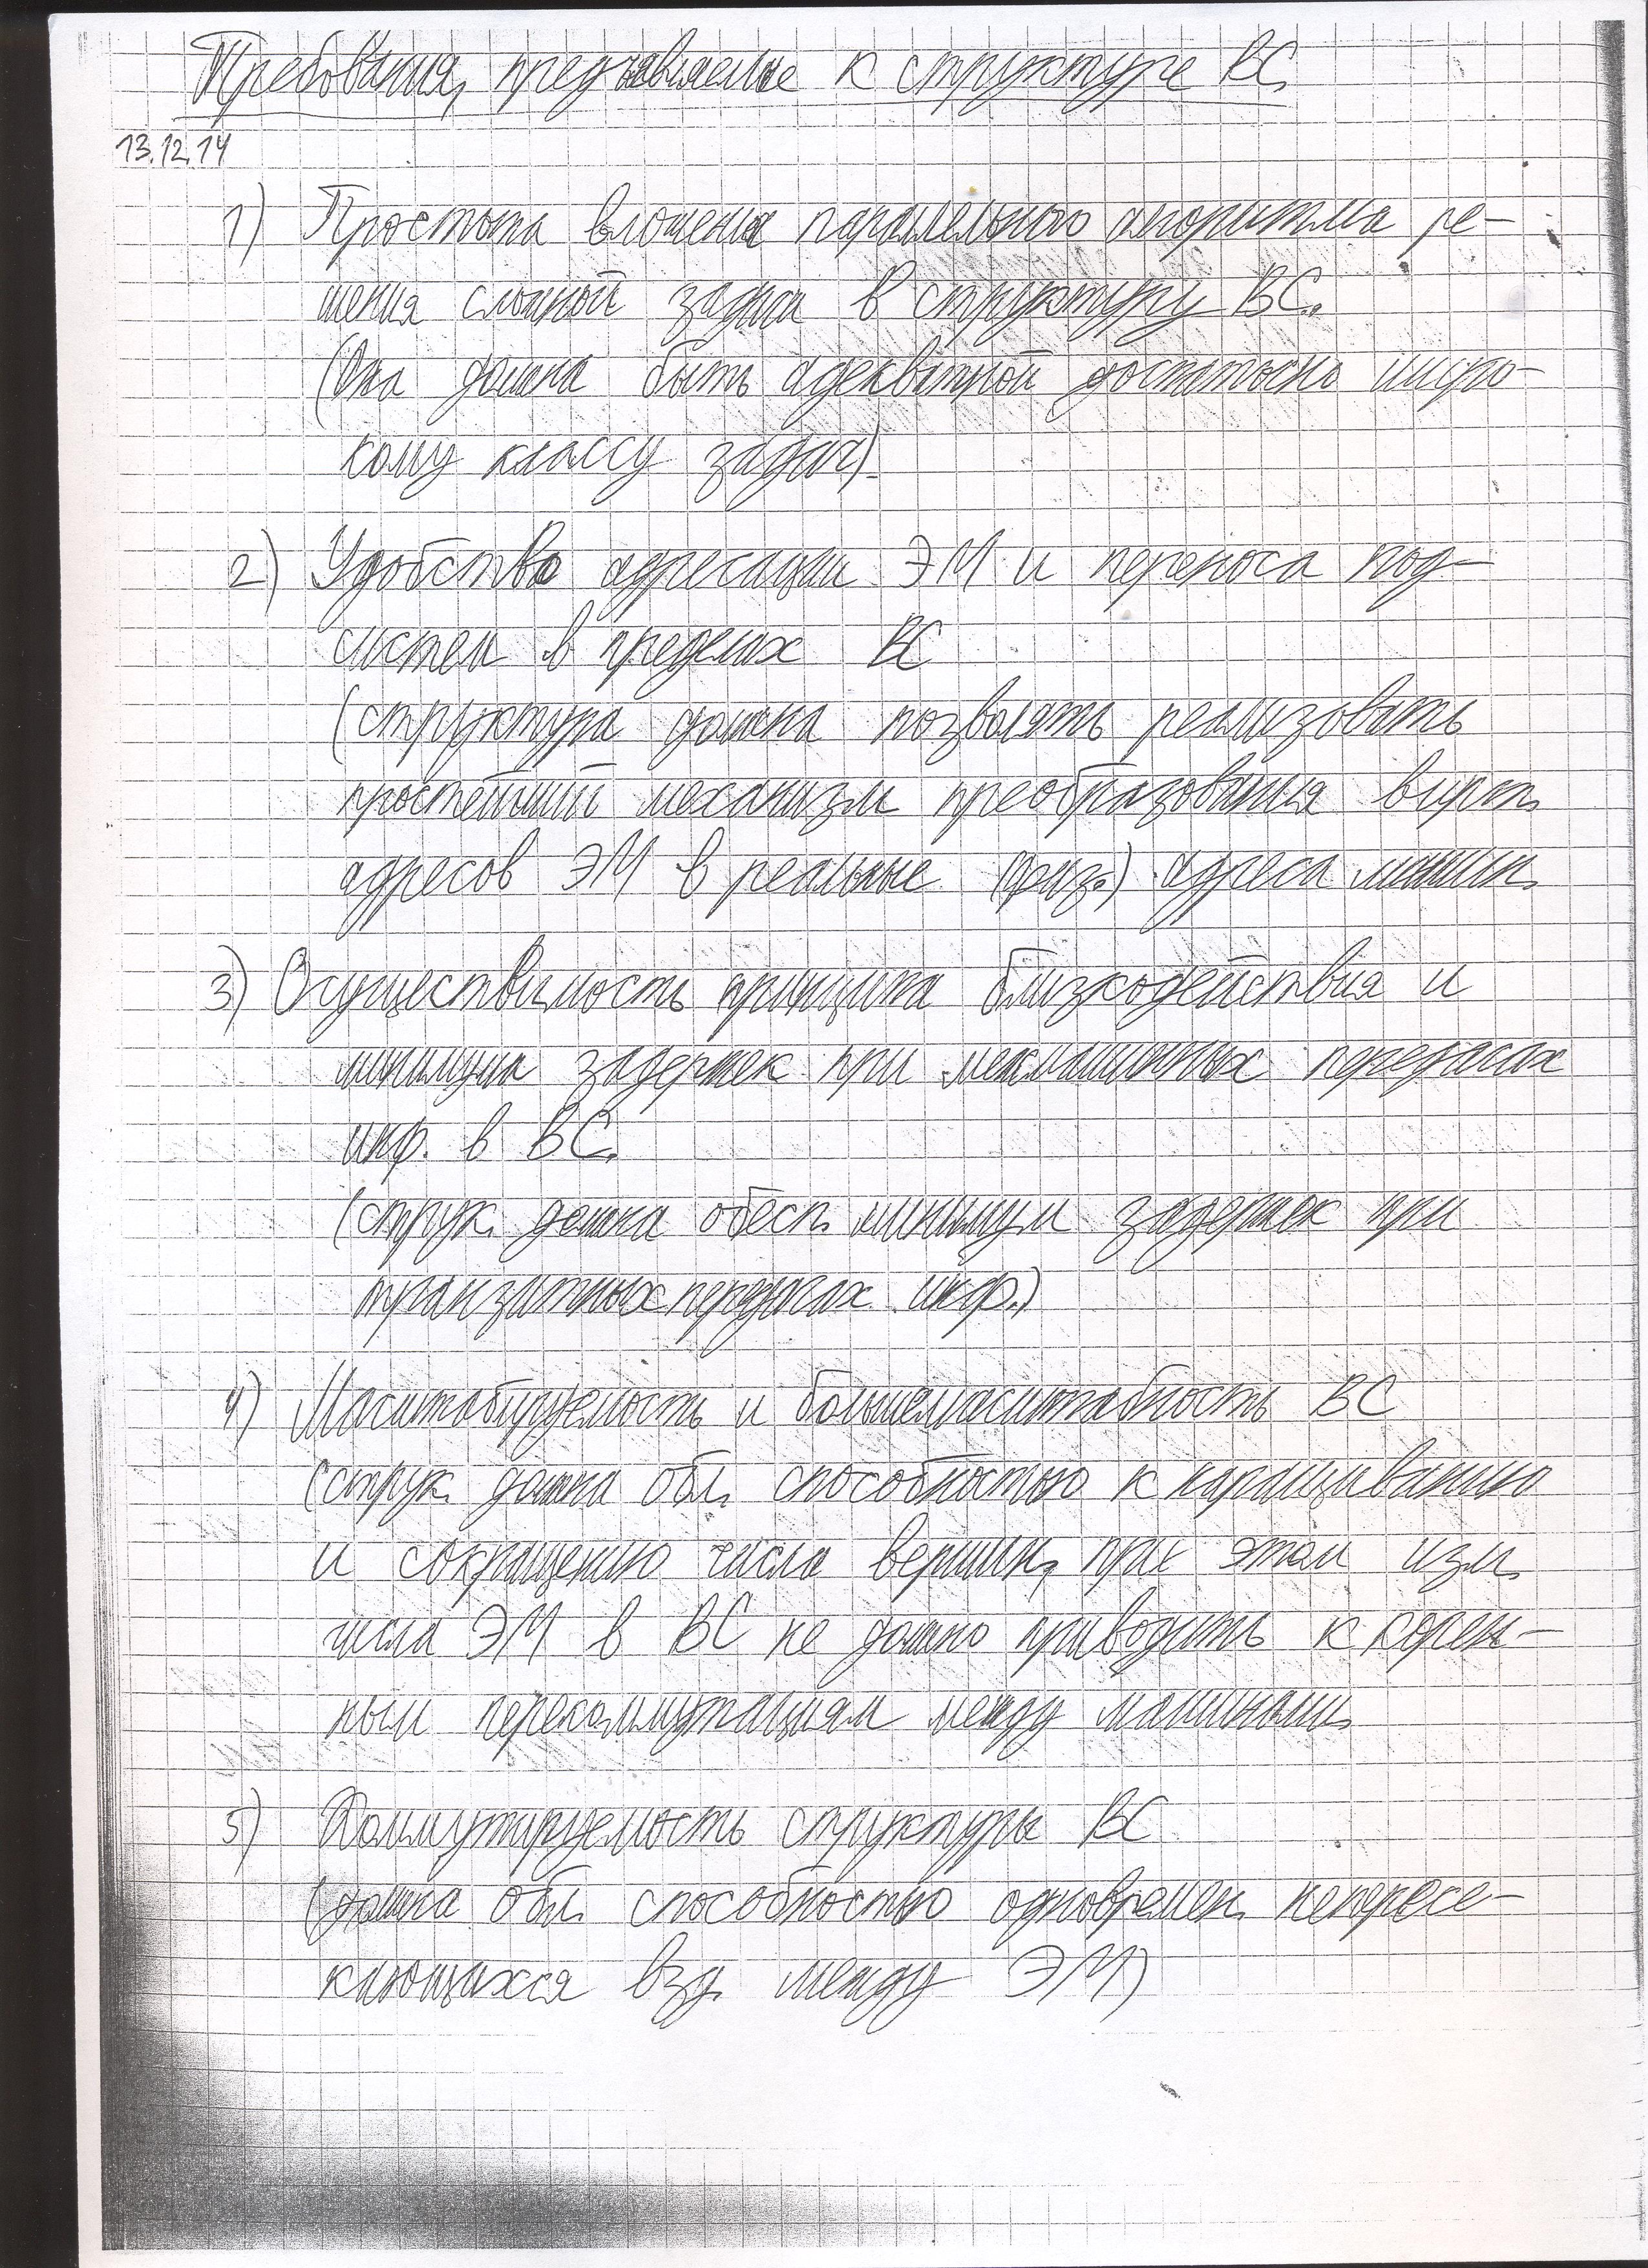 Требования, предъявляемые к структуре ВС.
13.12.14
1) Простота вложения параллельного алгоритма ре-
шения сложной задачи в структуру ВС.
(Она должна быть адекватной достаточно широ-
кому классу задач).
2) Удобство адресации ЭМ и переноса под-
систем в пределах ВС
(структура должна позволять реализовать
простейший механизм преобразования вирт.
адресов ЭМ в реальные (физ.) адреса машин.
3) Осуществимость принципа близкодействия и
минимума задержек при межмашинных передачах
инф. в ВС.
(струк. должна обесп. минимум задержек при
транзитных передачах инф.)
4) Масштабируемость и большемасштабность ВС
(струк. должна обл. способностью к наращиванию
и сокращению числа вершин, при этом изм.
числа ЭМ в ВС не должно приводить к корен-
ным перекоммутациям между машинами.
5) Коммутируемость структуры ВС
(должна обл. способностью одновремен. непересе-
кающихся вз. между ЭМ)